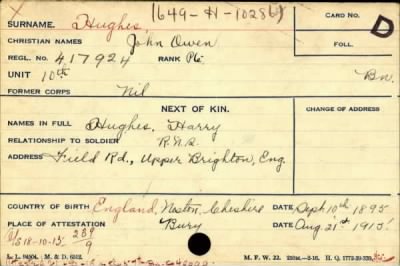 (649-H-10286)
SURNAME. Hughes,
CARD NO.
D
CHRISTIAN NAMES John Owen
FOLL.
REGL. NO. 417924 RANK Pte.
UNIT 10th Bn.
FORMER CORPS Nil
NEXT OF KIN.
CHANGE OF ADDRESS
NAMES IN FULL Hughes, Harry
RELATIONSHIP TO SOLDIER
ADDRESS Field Rd., Upper Brighton, Eng.
COUNTRY OF BIRTH England, Neston, Cheshire
DATE Sept 10th 1895
PLACE OF ATTESTATION Bury
DATE Aug 21st 1915
S 18-10-15 289/9
L. L. M. & D.
M. F. W. 22 H. Q. 1772-39-339